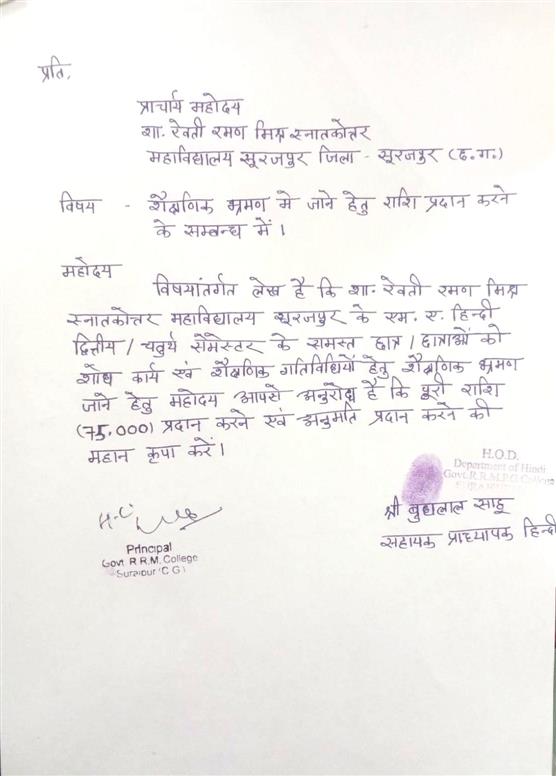 प्रति,
प्राचार्य महोदय
शा. रेवती रमण मिश्र स्नातकोत्तर
महाविद्यालय सूरजपुर जिला - सूरजपुर (छ.ग.)
विषय - शैक्षणिक भ्रमण मे जाने हेतु राशि प्रदान करने
के सम्बन्ध में ।
महोदय
विषयांतर्गत लेख है कि शा. रेवती रमण मिश्र
स्नातकोत्तर महाविद्यालय सूरजपुर के एम. ए. हिन्दी
द्वितीय / चतुर्थ सेमेस्टर के समस्त छात्र / छात्राओं को
शोध कार्य एवं शैक्षणिक गतिविधियों हेतु शैक्षणिक भ्रमण
जाने हेतु महोदय आपसे अनुरोध है कि पूरी राशि
(75,000) प्रदान करने एवं अनुमति प्रदान करने की
महान कृपा करें ।
H.O.D.
Department of Hindi
Govt.R.R.M.P.G.College
श्री बुधलाल साहू
सहायक प्राध्यापक हिन्दी
Principal
Govt R.R.M. College
Surajpur (C G)